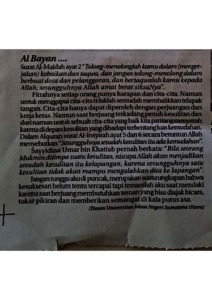 Al Bayan ....
Surat Al-Maidah ayat 2 "Tolong-menolonglah kamu dalam (menger-
jakan) kebaikan dan taqwa, dan jangan tolong-menolong dalam
berbuat dosa dan pelanggaran, dan bertaqwalah kamu kepada
Allah, sesungguhnya Allah amat berat siksaNya".
Fitrahnya setiap orang punya harapan dan cita-cita. Namun
untuk menggapai cita-cita tidaklah semudah membalikkan telapak
tangan. Cita-cita hanya dapat diperoleh dengan perjuangan dan
kerja keras. Namun saat berjuang terkadang penuh kesulitan dan
dari naman untuk sebuah cita-cita yang baik kita pantang menyerah
karena di depan kesulitan yang dihadapi terbentang luas kemudahan.
Dalam Alquran surat Al-Insyirah ayat 5 dan 6 secara beruntun Allah
menyebutkan "Sesungguhnya sesudah kesulitan itu ada kemudahan".
Sayyidina Umar bin Khattab pernah berkata: "Bila seorang
Mukmin ditimpa suatu kesulitan, niscaya Allah akan menjadikan
sesudah kesulitan itu kelapangan, karena sesungguhnya satu
kesulitan tidak akan mampu mengalahkan dua kelapangan".
Jangan tunggu aku di puncak, merupakan suatu ungkapan bahwa
kesuksesan belum tentu tercapai tapi temanilah aku saat mendaki
karena saat berjuang membutuhkan teman yang bisa diajak bicara,
tukar pikiran dan memberikan semangat di kala putus asa.
(Dosen Universitas Islam Negeri Sumatera Utara)